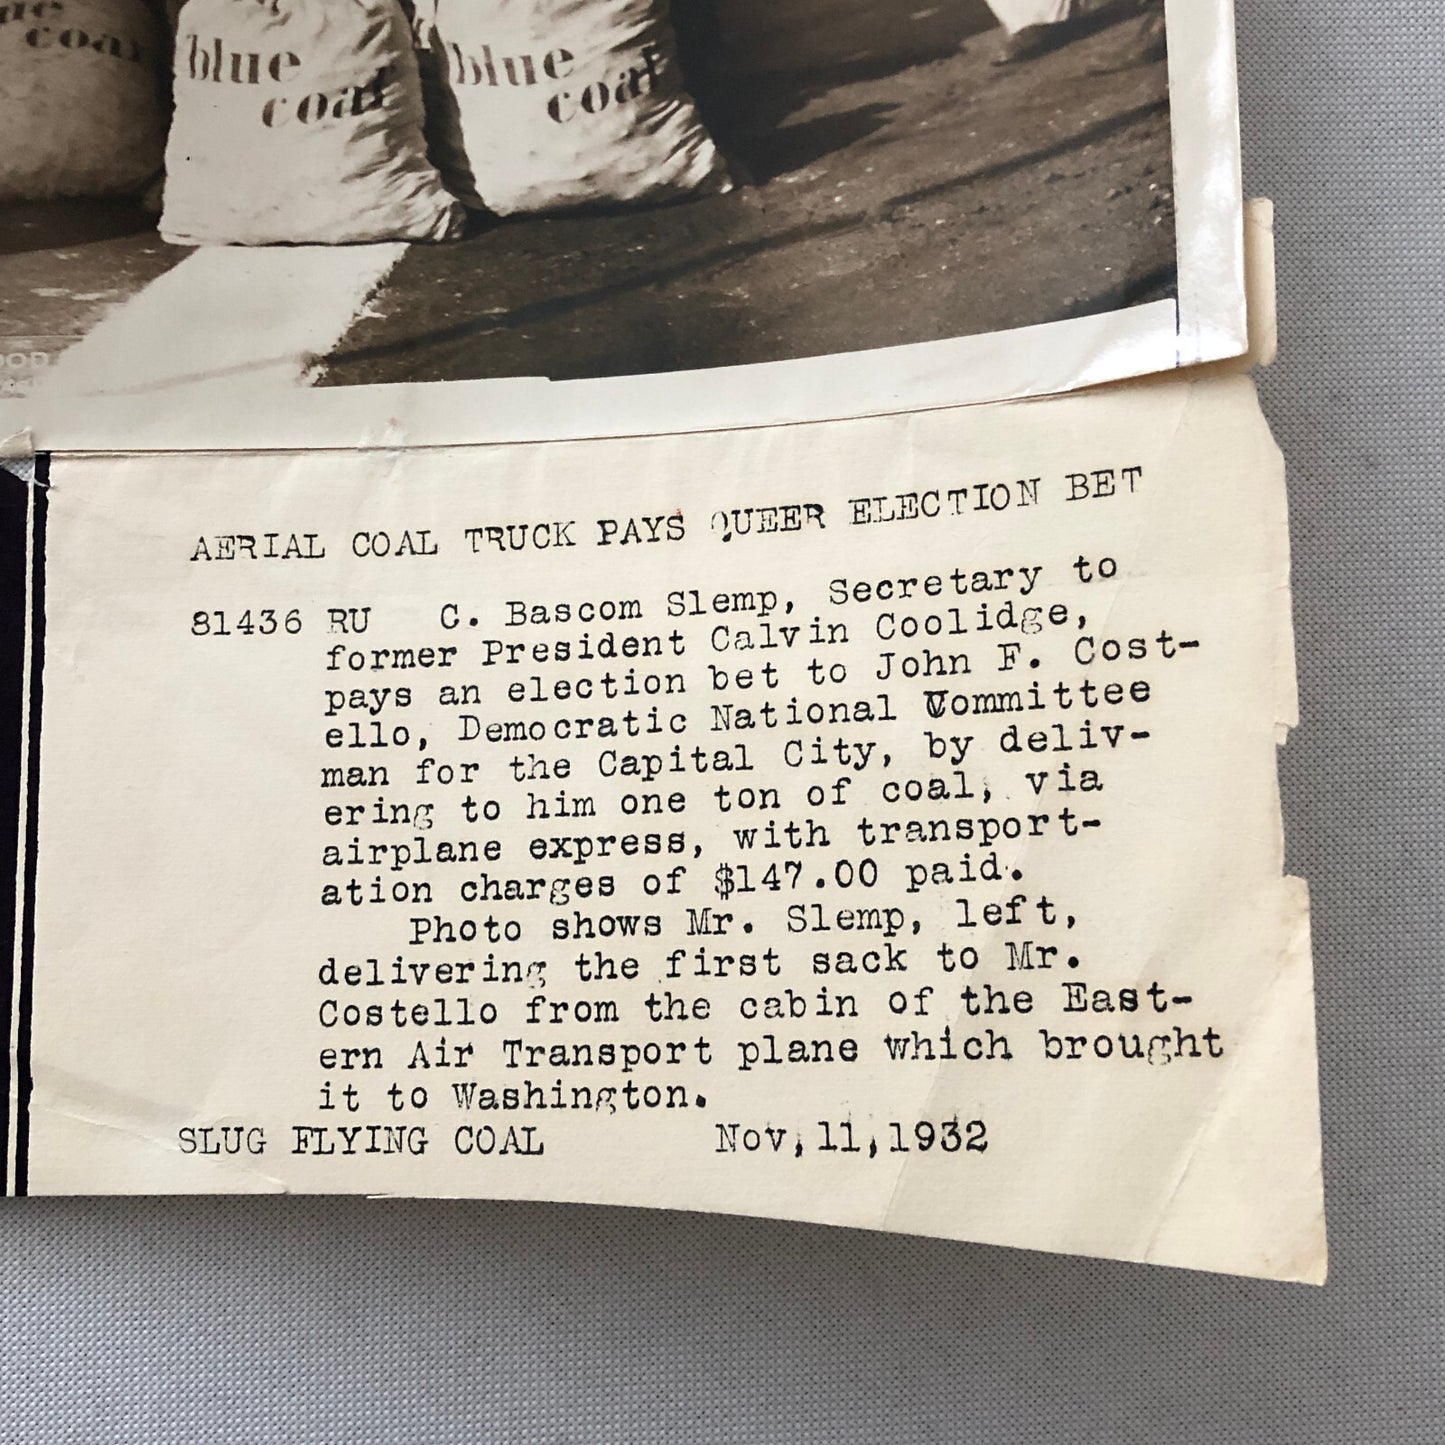 blue
coal
blue
coal
coal
AERIAL COAL TRUCK PAYS QUEER ELECTION BET
81436 RU C. Bascom Slemp, Secretary to
former President Calvin Coolidge,
pays an election bet to John F. Cost-
ello, Democratic National Committee
man for the Capital City, by deliv-
ering to him one ton of coal, via
airplane express, with transport-
ation charges of $147.00 paid.
Photo shows Mr. Slemp, left,
delivering the first sack to Mr.
Costello from the cabin of the East-
ern Air Transport plane which brought
it to Washington.
SLUG FLYING COAL Nov, 11, 1932